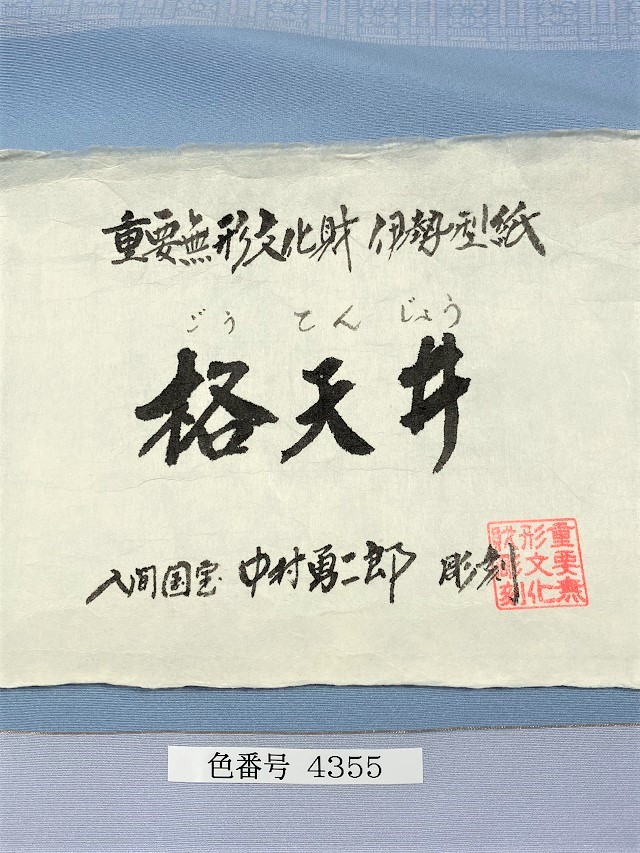 重要無形文化財 伊勢型紙
ごう てん じょう
格天井
人間国宝 中村勇二郎 彫刻
重要無
形文化
財彫刻
色番号 4355